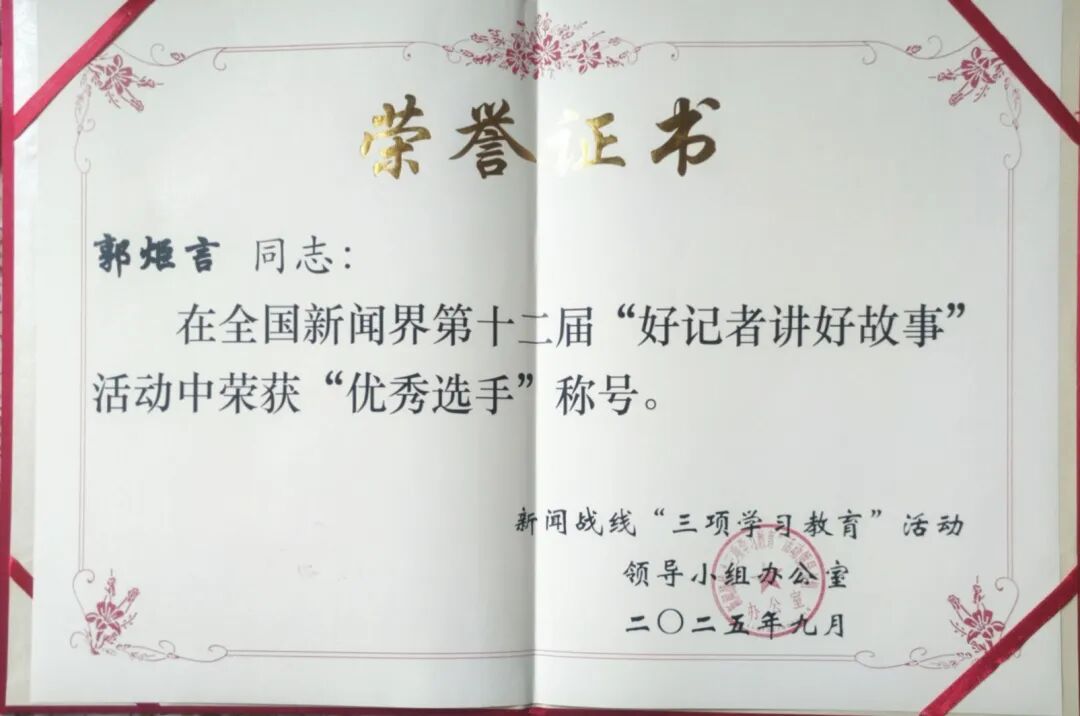 荣誉证书
郭炬言 同志：
在全国新闻界第十二届“好记者讲好故事”
活动中荣获“优秀选手”称号。
新闻战线“三项学习教育”活动
领导小组办公室
二〇二五年九月
办公室